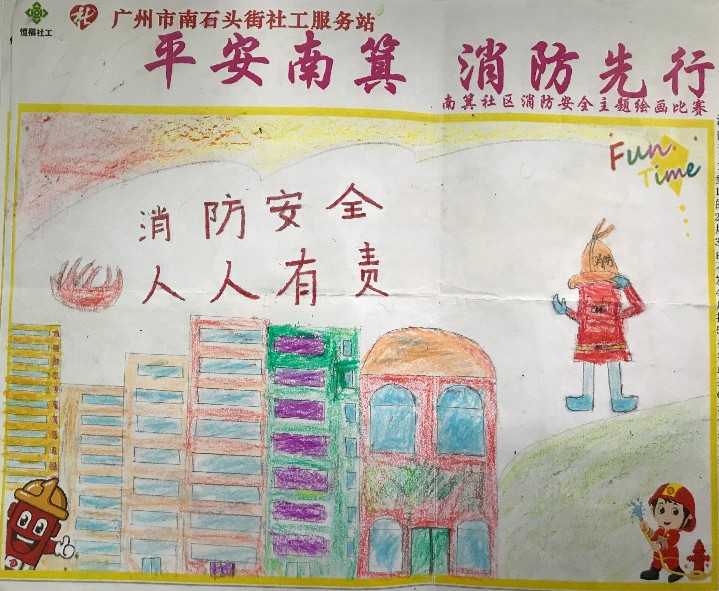 恒福社工
广州市南石头街社工服务站
平安南箕 消防先行
南箕社区消防安全主题绘画比赛
Fun
Time
消防安全
人人有责